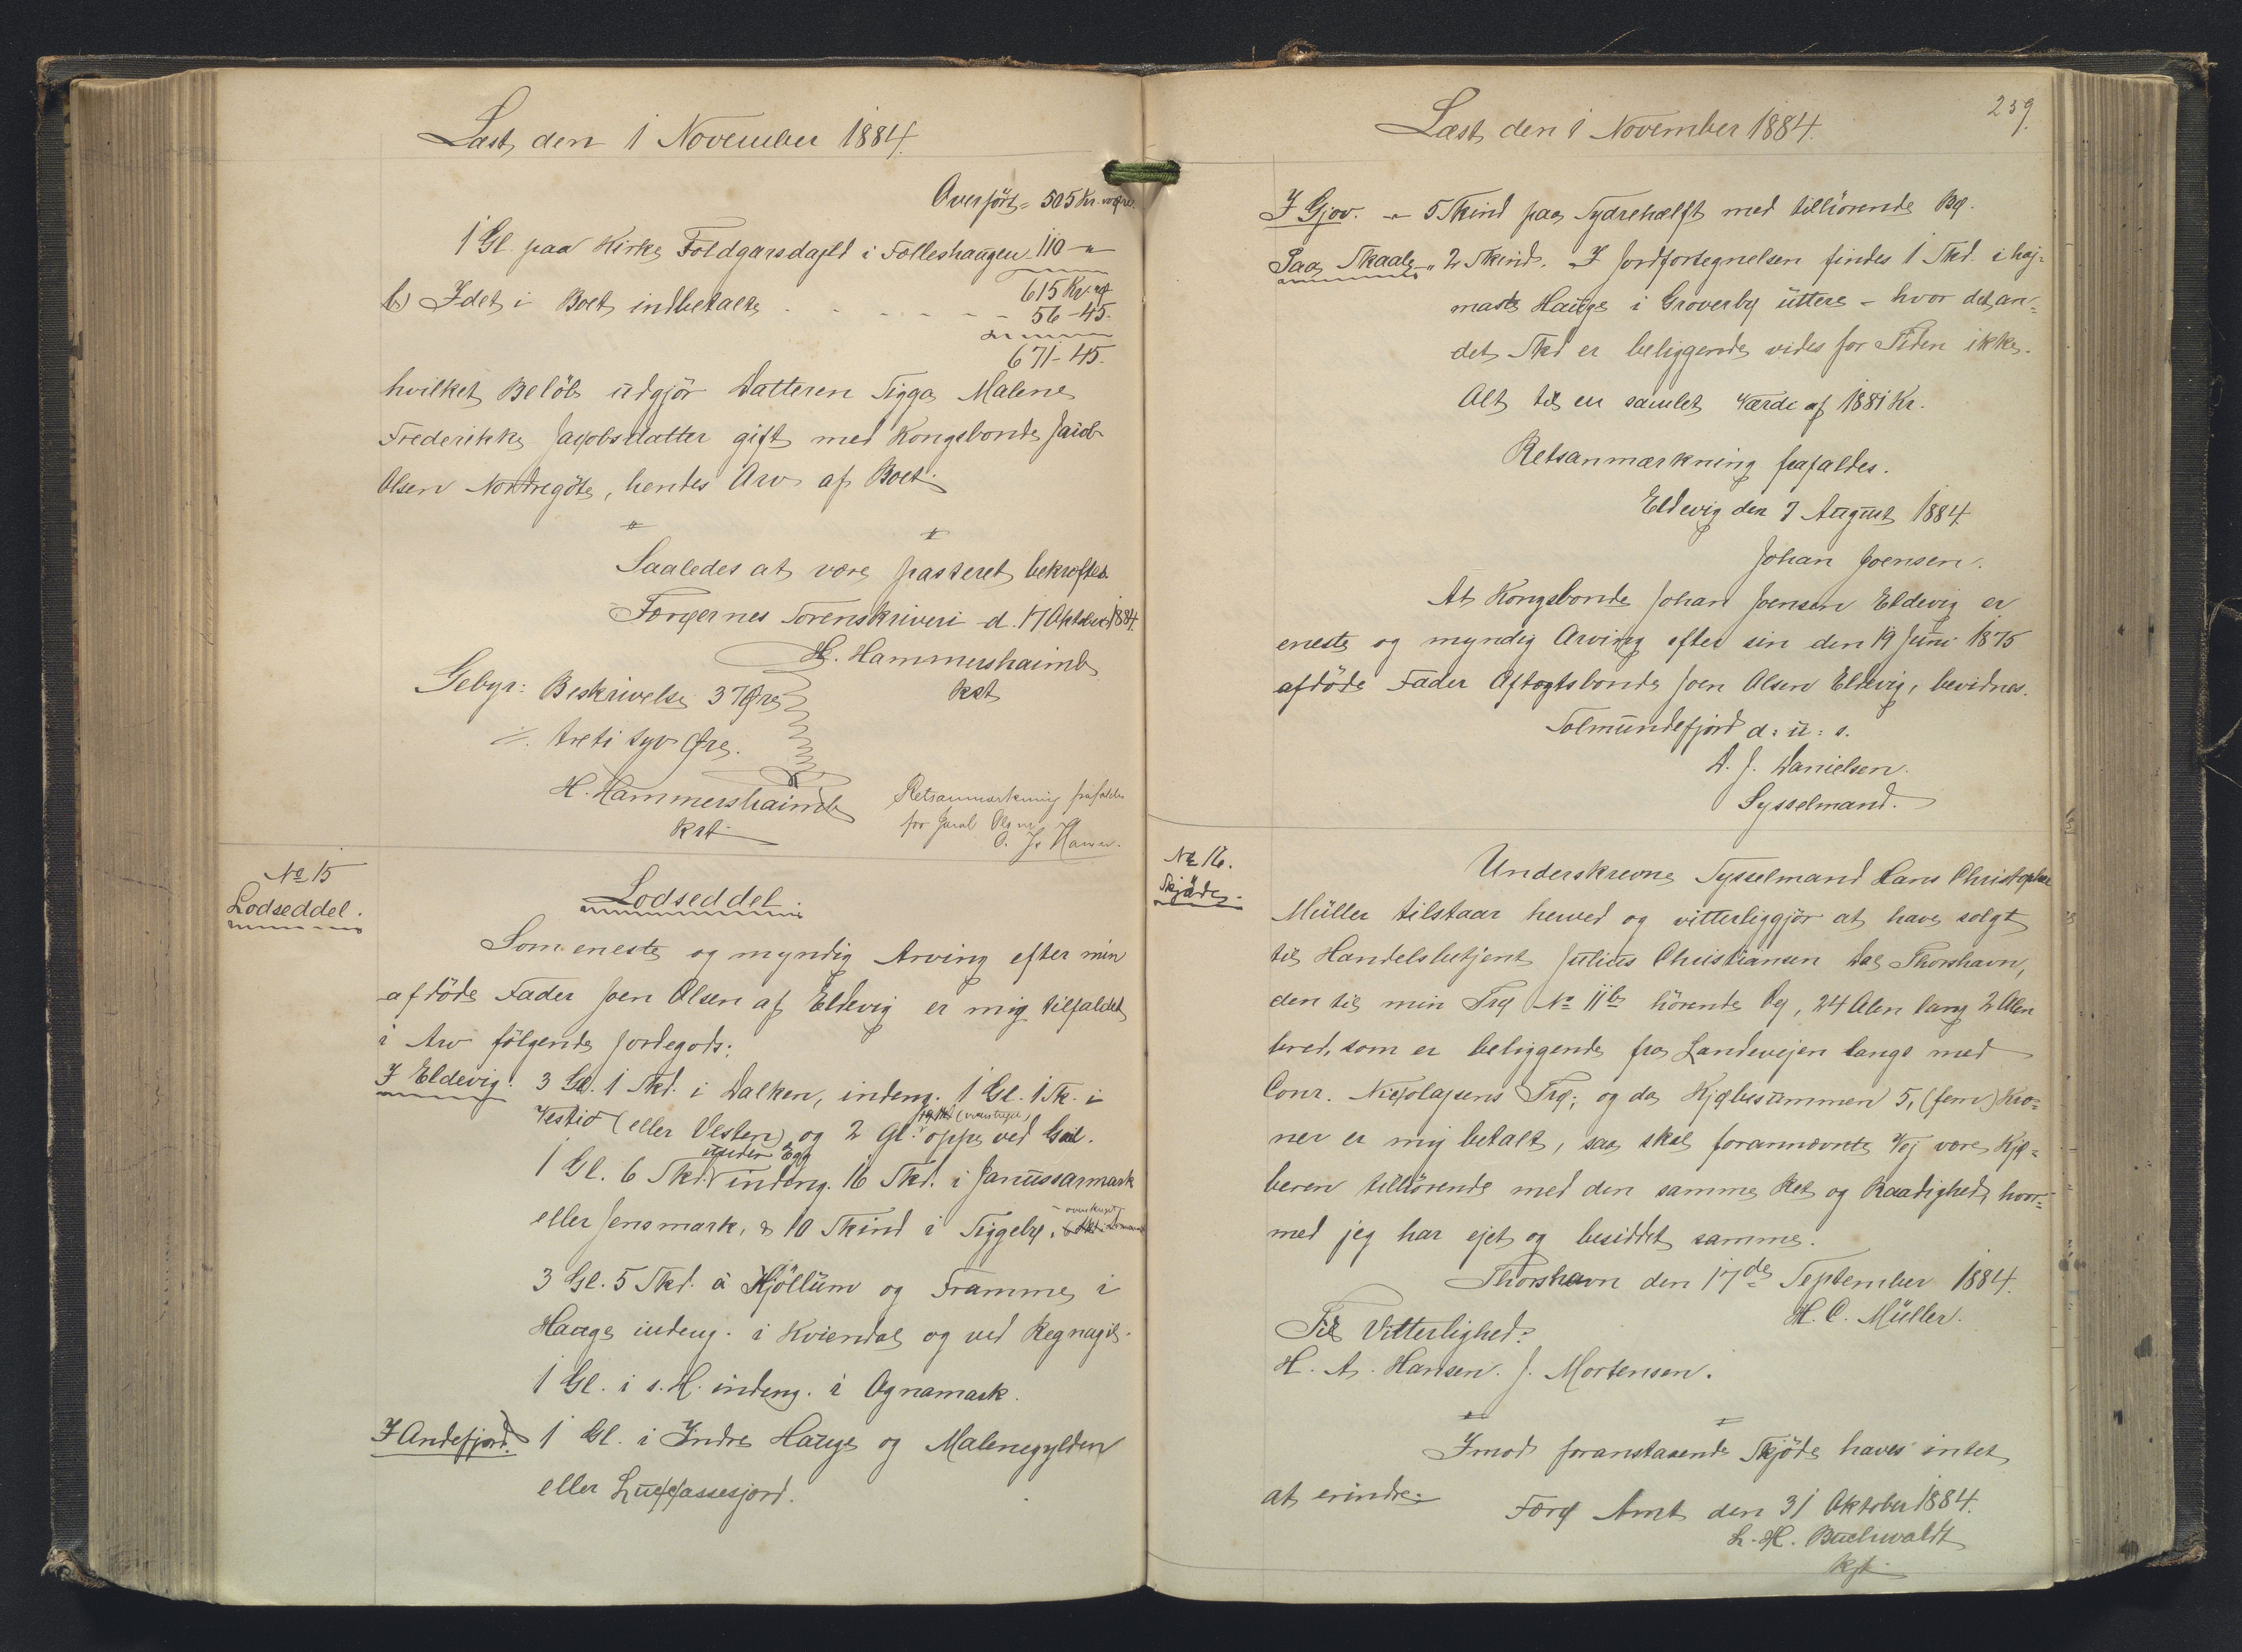 Læst den 1 November 1884.
Overført = 505 Kr. " Øre.
1 Gl. paa Kirke Foldgarsdajld i Folleshaugen 110 - "
615 Kr. "
b) I det i Boet indbetalte . . . . . . 56 - 45.
671 - 45.
hvilket Beløb udgjør Datteren Sigga Malene
Frederikke Jacobsdatter gift med Kongsbonde Jacob
Olsen Nordregöte, hendes Arv af Boet.
Saaledes at være passeret bekræftes.
Færøernes Sorenskriveri d. 17 Oktober 1884.
H. Hammershaimb
kst
Gebyr: Beskrivelse 37 Øre
./. treti syv Øre.
H. Hammershaimb
kst
Retsanmærkning frafaldes
for Jacob Olsen
O. Js Hansen.
No 15
Lodseddel.
Lodseddel.
Som eneste og myndig Arving efter min
afdøde Fader Joen Olsen af Eldevig er mig tilfaldet
i Arv følgende Jordegods:
I Eldevig. 3 Gl. 1 Skd. i Dalken, indeng. 1 Gl. 1 Sk. i
Vestio (eller Vesten) og 2 Gl. oppe ved Geil.
1 Gl. 6 Skd. under Egg indeng. 16 Skd. i Janussarmark
eller Jensmark, & 10 Skind i Siggeby.
3 Gl. 5 Skd. á Hjöllum og Framme i
Hauge indeng. i Kviendal og ved Regnagil.
1 Gl. i s. H. indeng. i Ognamark.
I Andefjord. 1 Gl. i Indre Hauge og Malenegylden
eller Luccassesjord.
259.
Læst den 1 November 1884.
I Gjov. - 5 Skind paa Sydrehælft med tilliørende Bø.
Paa Skaale " 2 Skind. I Jordfortegnelsen findes 1 Skd. i høj-
maste Hauge i Groverby üttere - hvor det an-
det Skd er beliggende vides for Tiden ikke.
Alt til en samlet Værdi af 1881 Kr.
Retsanmærkning frafaldes.
Eldevig den 7 August 1884
Johan Joensen.
At Kongsbonde Johan Joensen Eldevig er
eneste og myndig Arving efter sin den 19 Juni 1875
afdøde Fader Aftægtsbonde Joen Olsen Eldevig, bevidnes.
Solmundefjord d: u: s.
D. J. Danielsen.
Sysselmand.
No 16.
Skjøde.
Underskrevne Sysselmand Hans Christopher
Müller tilstaar herved og vitterliggjør at have solgt
til Handelsbetjent Julius Christiansen Dal Thorshavn,
den til min Trø No 11b hörende Vej, 24 Alen lang 2 Alen
bred, som er beliggende fra Landevejen langs med
Conr. Nicolajsens Trø; og da Kjøbesummen 5, (fem) Kro-
ner er mig betalt, saa skal forannævnte Vej være Kjø-
beren tilhørende med den samme Ret og Raadighed, hvor-
med jeg har ejet og besiddet samme.
Thorshavn den 17de September 1884.
H. C. Müller.
Til Vitterlighed:
H. A. Hansen. J. Mortensen.
Imod foranstaaende Skjøde haves intet
at erindre.
Færø Amt den 31 Oktober 1884.
L. H. Buchwaldt
kst